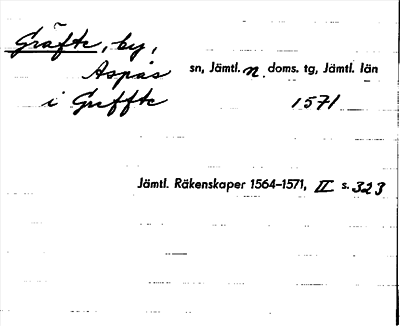 Gräfte, by,
Aspås sn, Jämtl. n. doms. tg, Jämtl. län
i Greffte 1571
Jämtl. Räkenskaper 1564–1571, II s. 323